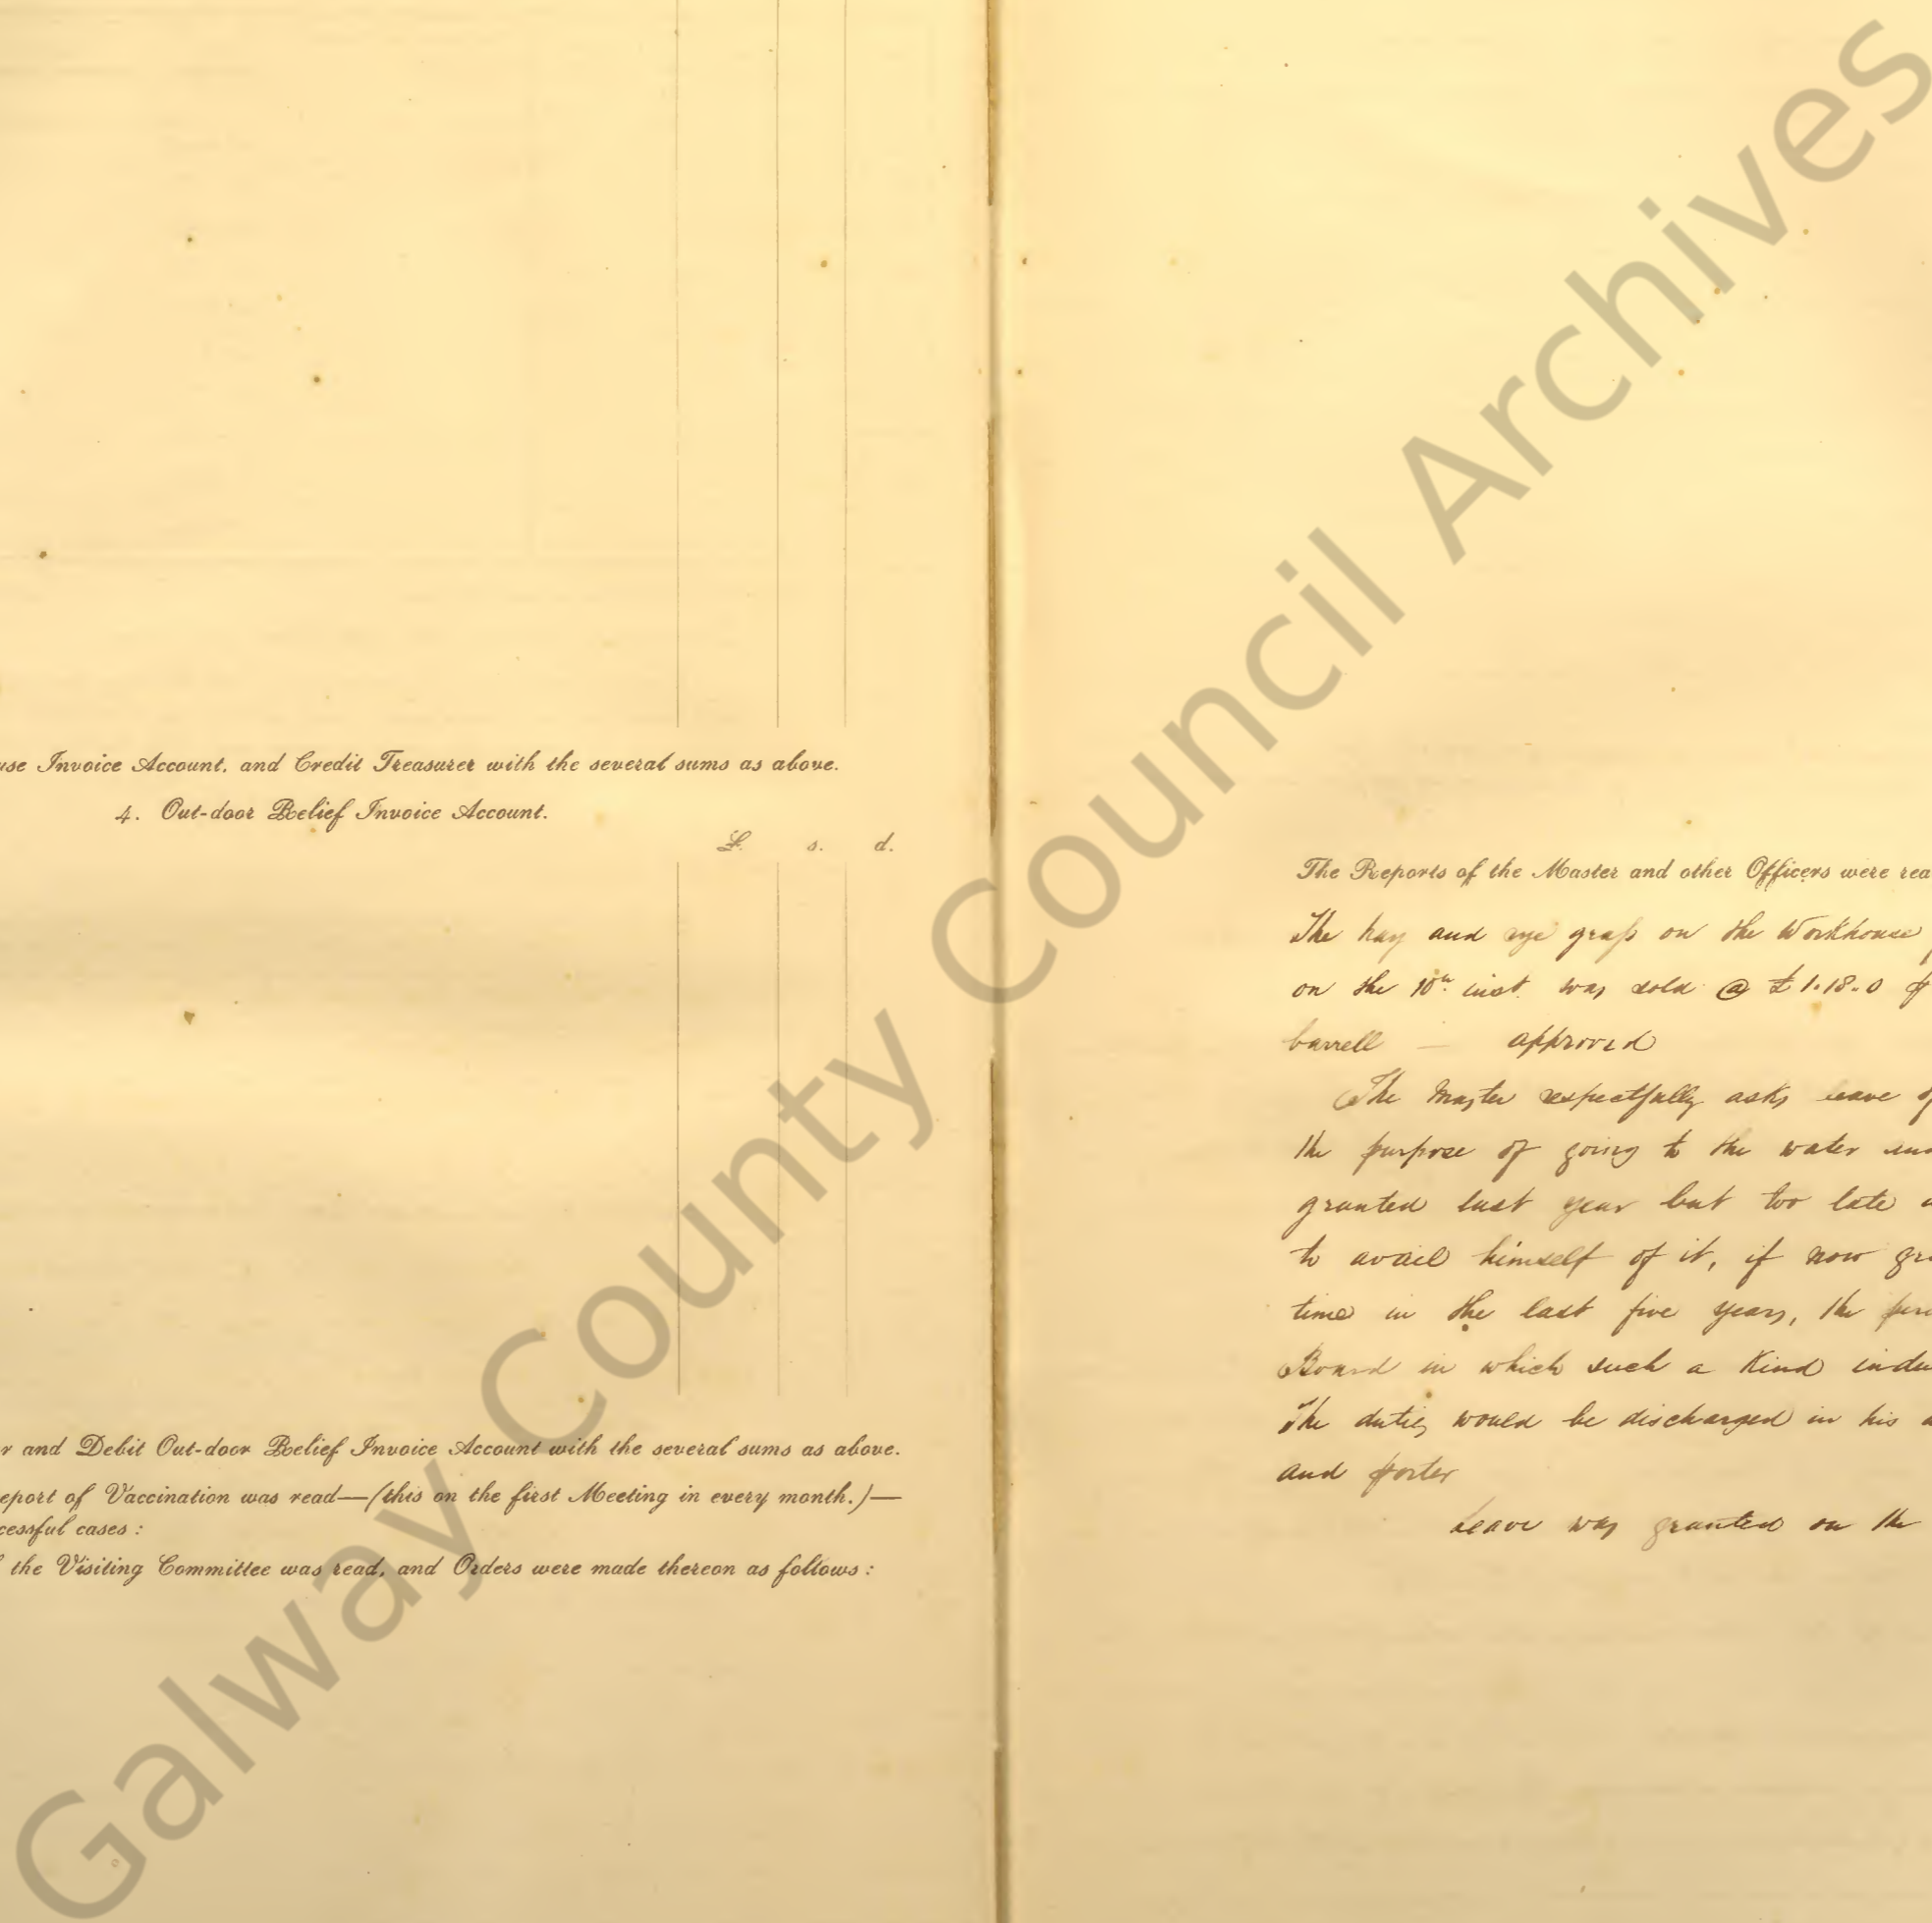 use Invoice Account, and Credit Treasurer with the several sums as above.
4. Out-door Relief Invoice Account.
£. s. d.
r and Debit Out-door Relief Invoice Account with the several sums as above.
eport of Vaccination was read—(this on the first Meeting in every month.)—
cessful cases:
the Visiting Committee was read, and Orders were made thereon as follows:
The Reports of the Master and other Officers were rea
The hay and rye grass on the Workhouse
on the 10th inst. was sold @ £1.18.0 p
barrell — approved
The Master respectfully asks leave of
the purpose of going to the water
granted last year but too late a
to avail himself of it, if now gra
time in the last five years, the
Board in which such a Kind indu
The duties would be discharged in his a
and porter
Leave was granted on the
Galway County Council Archives